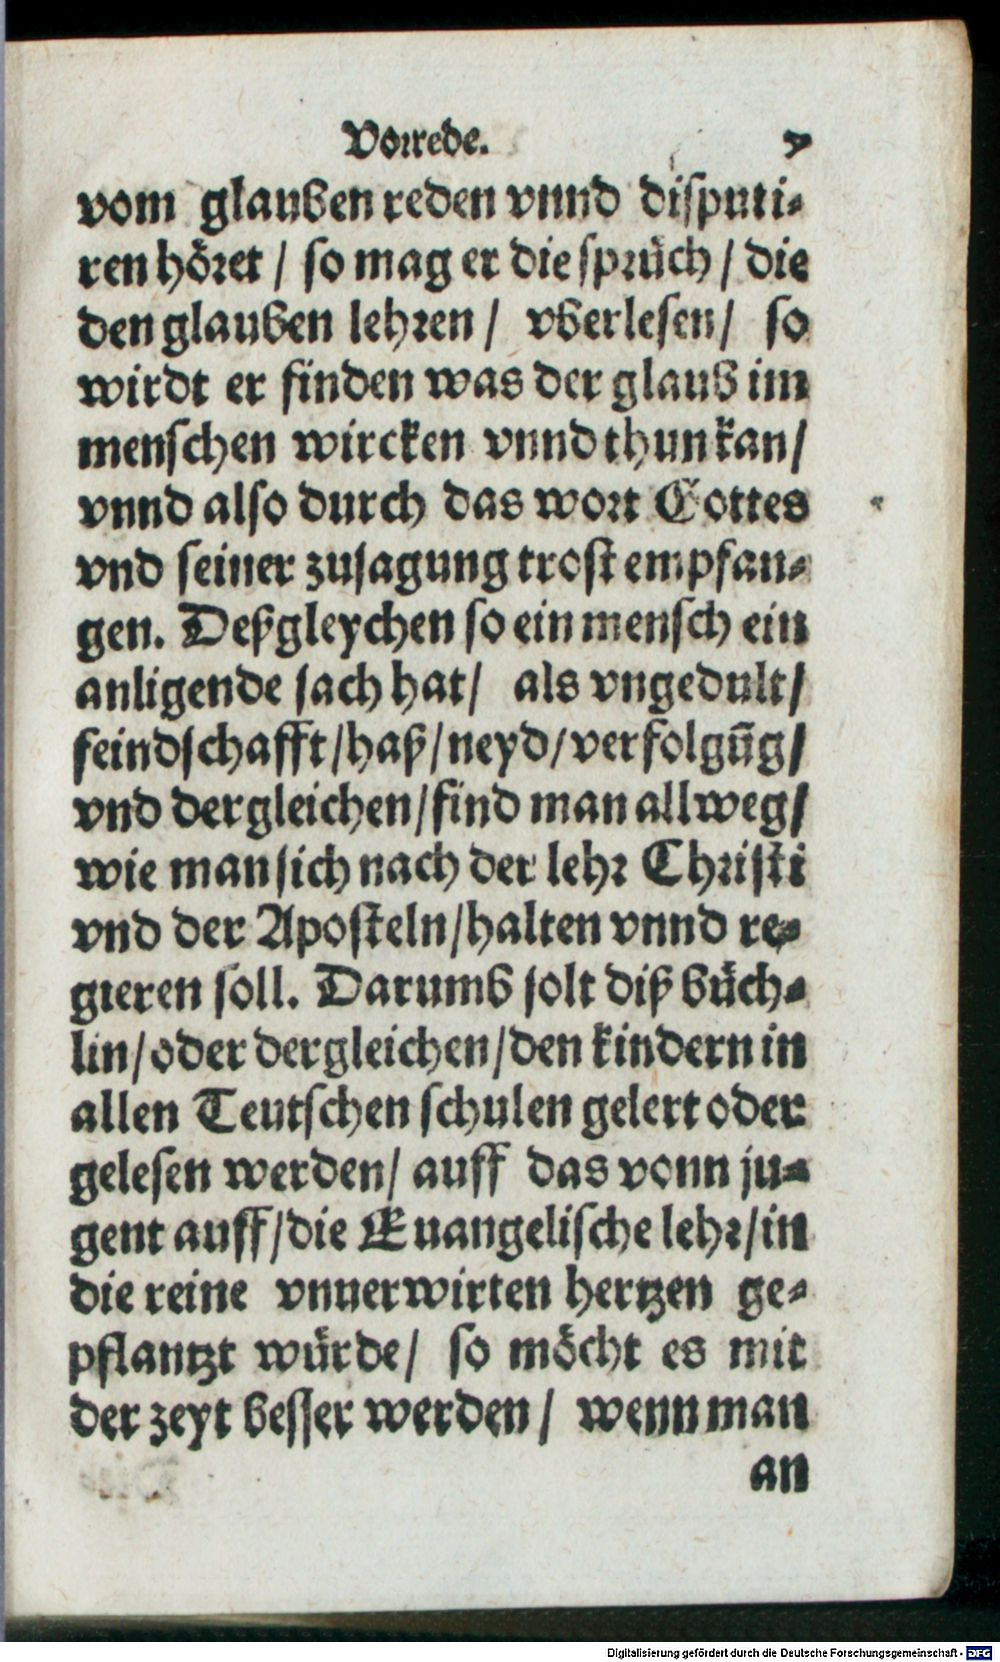 Vorrede. 7
vom glauben reden vnnd disputi-
ren höret / so mag er die sprüch / die
den glauben lehren / vberlesen / so
wirdt er finden was der glaub im
menschen wircken vnnd thun kan /
vnnd also durch das wort Gottes
vnd seiner zusagung trost empfan-
gen. Deßgleychen so ein mensch ein
anligende sach hat / als vngedult /
feindschafft / haß / neyd / verfolgūg /
vnd dergleichen / find man allweg /
wie man sich nach der lehr Christi
vnd der Aposteln / halten vnnd re-
gieren soll. Darumb solt diß büch-
lin / oder dergleichen / den kindern in
allen Teutschen schulen gelert oder
gelesen werden / auff das vonn ju-
gent auff / die Euangelische lehr / in
die reine vnuerwirten hertzen ge-
pflantzt würde / so möcht es mit
der zeyt besser werden / wenn man
an
Digitalisierung gefördert durch die Deutsche Forschungsgemeinschaft - DFG